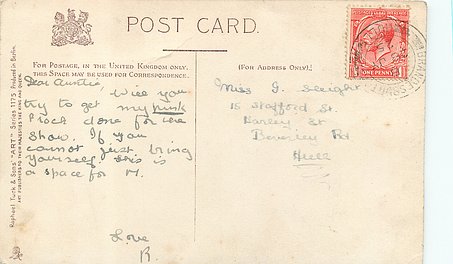 POST CARD.
FOR POSTAGE, IN THE UNITED KINGDOM ONLY,
THIS SPACE MAY BE USED FOR CORRESPONDENCE.
(FOR ADDRESS ONLY.)
Dear Auntie,
Will you
try to get my pink
frock done for the
show. If you
cannot just bring
yourself. This is
a space for M.
Love
R.
Miss J. Sleight
15 Stafford St.
Harley St
Beverley Rd
Hull
ONE PENNY
Raphael Tuck & Sons' "ART" Series 1175. Printed in Berlin.
ART PUBLISHERS TO THEIR MAJESTIES THE KING AND QUEEN.